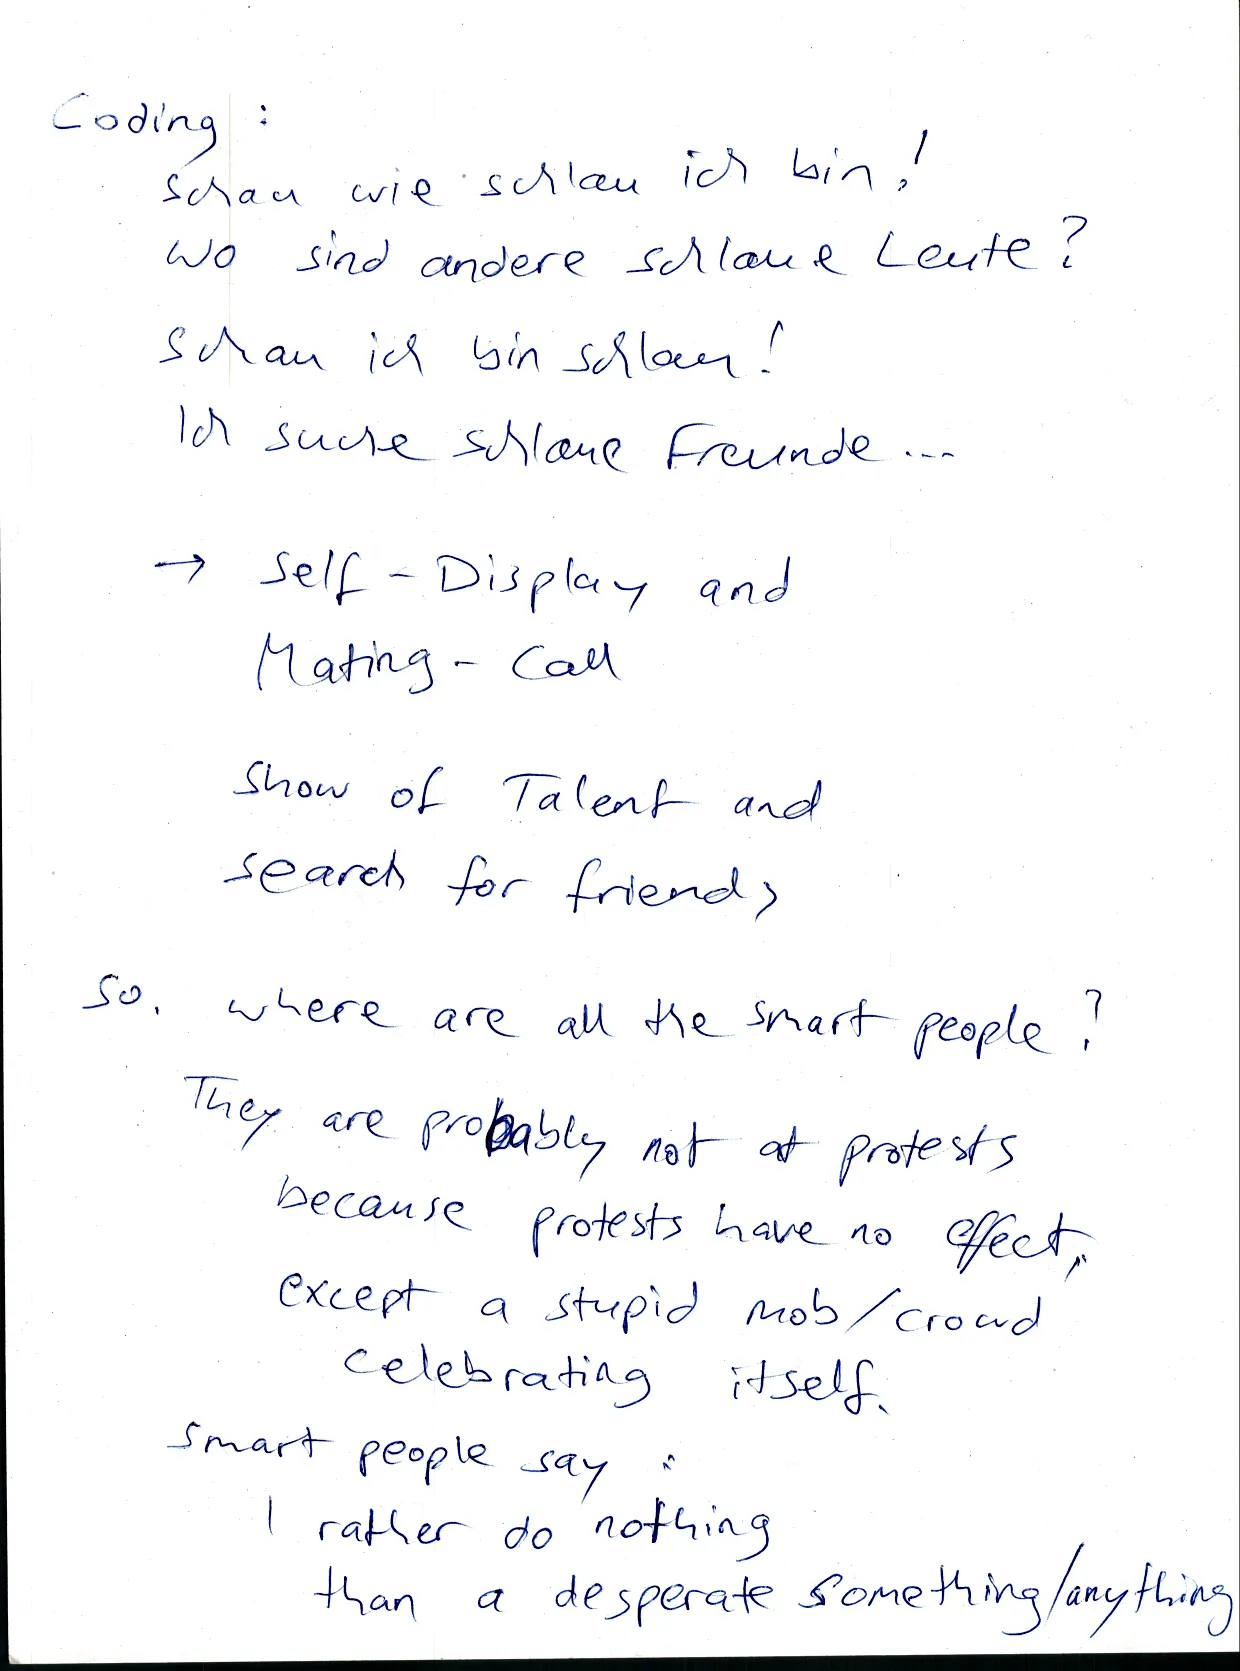 Coding :
Schau wie schlau ich bin!
Wo sind andere schlaue Leute?
Schau ich bin schlau!
Ich suche schlaue Freunde...
→ Self-Display and
Mating-Call
Show of Talent and
search for friends
So. where are all the smart people?
They are probably not at protests
because protests have no effect,
except a stupid mob/crowd
celebrating itself.
Smart people say :
I rather do nothing
than a desperate something/anything